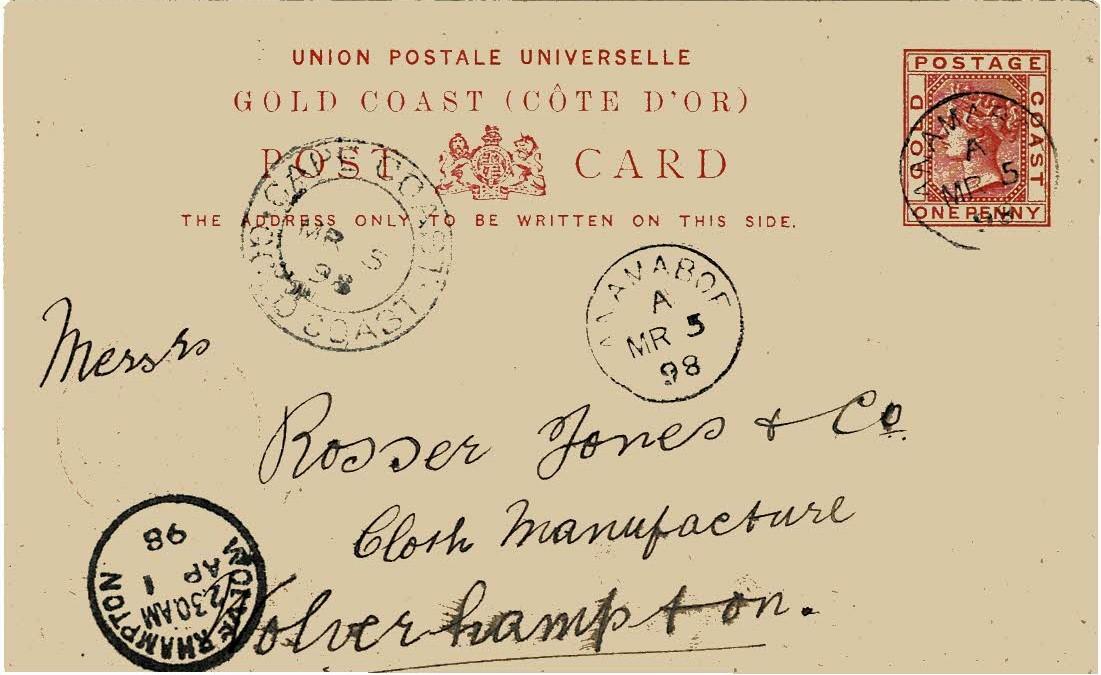 UNION POSTALE UNIVERSELLE
GOLD COAST (CÔTE D'OR)
POST CARD
THE ADDRESS ONLY TO BE WRITTEN ON THIS SIDE.
POSTAGE
GOLD COAST
ONE PENNY
A
MR 5
98
CAPE COAST
GOLD COAST
MR 5
98
ANAMABOE
A
MR 5
98
Messrs
Rosser Jones & Co.
Cloth Manufacture
Wolverhampton.
WOLVERHAMPTON
230AM
AP 1
98